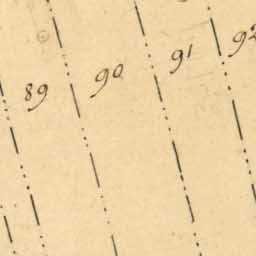 89 90 91 92